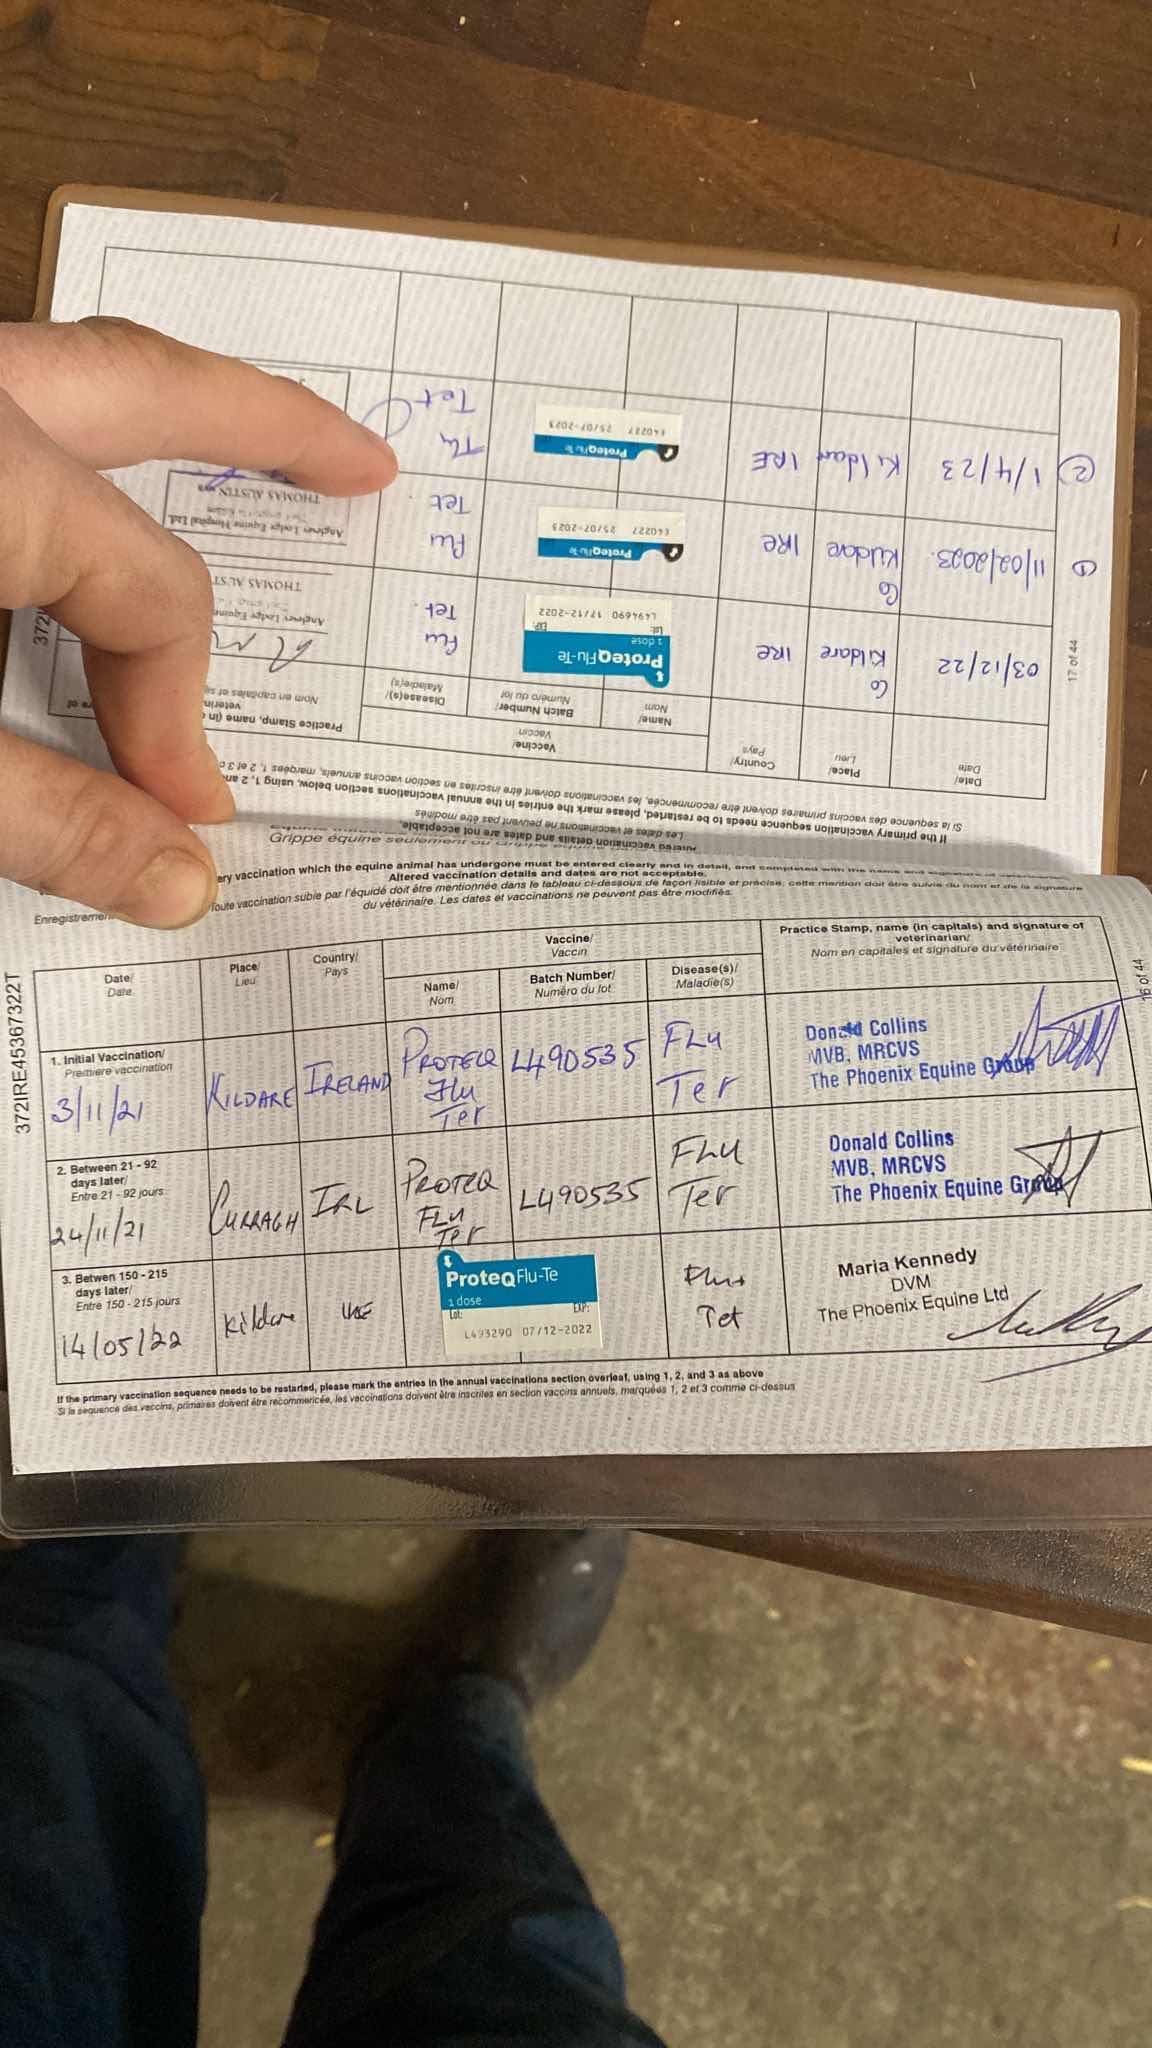 372IRE45367322T
Date/
Date
Place/
Lieu
Country/
Pays
Vaccine/
Vaccin
Name/
Nom
Batch Number/
Numéro du lot
Disease(s)/
Maladie(s)
Practice Stamp, name (in
Nom en capitales et
If the primary vaccination sequence needs to be restarted, please mark the entries in the annual vaccinations section below, using 1, 2 and
Si la sequence des vaccins primaires doivent être recommencée, les vaccinations doivent être inscrites en section vaccins annuels, marquées 1, 2 et 3
03/12/22
Co
Kildare
IRE
ProteqFlu-Te
1 dose
Lot: EXP:
L494690 17/12-2022
Flu
Tet.
Anglesey Lodge Equine
THOMAS AUST
① 11/02/2023.
Co
Kildare
IRE
ProteqFlu-Te
E40227 25/07-2023
Flu
Tet
Anglesey Lodge Equine Hospital Ltd.
THOMAS AUSTIN
② 1/4/23
Kildare
IRE
ProteqFlu-Te
E40227 25/07-2023
Flu
Tet
17 of 44
Grippe équine seulement ou
ery vaccination which the equine animal has undergone must be entered clearly and in detail, and completed with the name and signature of
Altered vaccination details and dates are not acceptable.
Toute vaccination subie par l'équidé doit être mentionnée dans le tableau ci-dessous de façon lisible et précise, cette mention doit être suivie du nom et de la signature
du vétérinaire. Les dates et vaccinations ne peuvent pas être modifiés.
Enregistrement
Date/
Date
Place/
Lieu
Country/
Pays
Vaccine/
Vaccin
Name/
Nom
Batch Number/
Numéro du lot
Disease(s)/
Maladie(s)
Practice Stamp, name (in capitals) and signature of
veterinarian/
Nom en capitales et signature du vétérinaire
1. Initial Vaccination/
Premiere vaccination
3/11/21
KILDARE
IRELAND
PROTEQ
Flu
Tet
L490535
FLU
Tet
Donald Collins
MVB, MRCVS
The Phoenix Equine Group
2. Between 21 - 92
days later/
Entre 21 - 92 jours
24/11/21
CURRAGH
IRL
PROTEQ
FLU
Tet
L490535
FLU
Tet
Donald Collins
MVB, MRCVS
The Phoenix Equine Group
3. Betwen 150 - 215
days later/
Entre 150 - 215 jours
14/05/22
Kildare
IRE
ProteqFlu-Te
1 dose
Lot: EXP:
L493290 07/12-2022
Flu +
Tet
Maria Kennedy
DVM
The Phoenix Equine Ltd
If the primary vaccination sequence needs to be restarted, please mark the entries in the annual vaccinations section overleaf, using 1, 2, and 3 as above
Si la sequence des vaccins, primaires doivent être recommencée, les vaccinations doivent être inscrites en section vaccins annuels, marquées 1, 2 et 3 comme ci-dessus
16 of 44